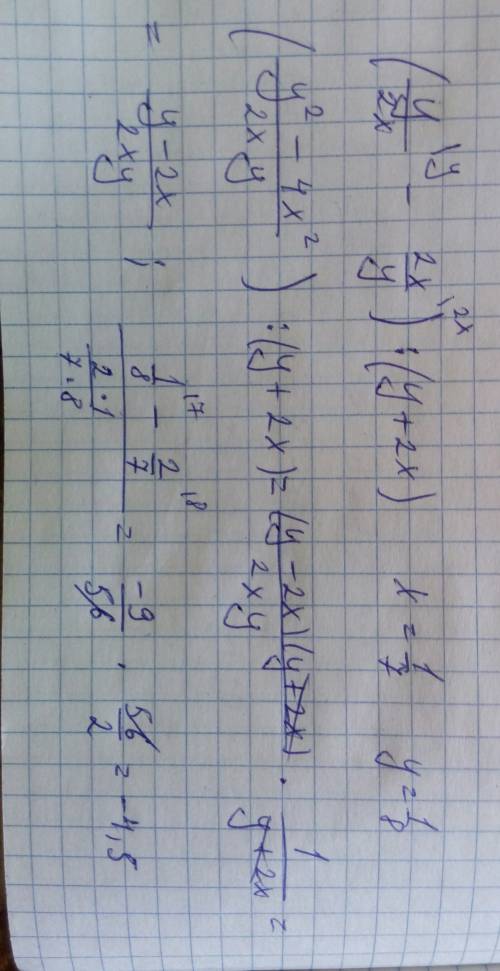 (y/2x \y − 2x/y \2x) : (y + 2x)   x = 1/7   y = 1/8
((y² − 4x²)/2xy) : (y + 2x) = (y − 2x)(y + 2x)/2xy · 1/(y + 2x) =
= (y − 2x)/2xy ; (1/8 \7 − 2/7 \8)/(2·1/7·8) = −9/56 · 56/2 = −4,5